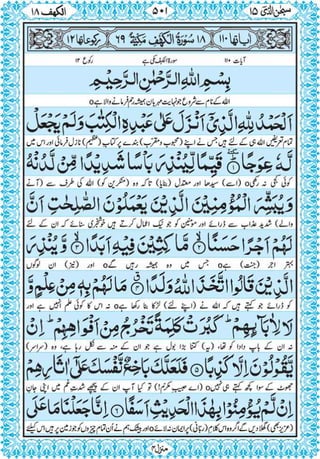 سبحٰن الذی ۱۵ ۵۰۱ الکهف ۱۸
اٰیاتها ۱۱۰ ۱۸ سُوْرَةُ الْكَهْفِ مَكِّیَّةٌ ۶۹ رکوعاتها ۱۲
آیات ۱۱۰ سورۃ الکہف مکی ہے رکوع ۱۲
بِسْمِ اللّٰهِ الرَّحْمٰنِ الرَّحِیْمِ
اللہ کے نام سے شروع جو نہایت مہربان ہمیشہ رحم فرمانے والا ہے
اَلْحَمْدُ لِلّٰهِ الَّذِیْۤ اَنْزَلَ عَلٰی عَبْدِهِ الْكِتٰبَ وَلَمْ یَجْعَلْ
تمام تعریفیں اللہ ہی کے لئے ہیں جس نے اپنے (محبوب و مقرب) بندے پر کتاب (عظیم) نازل فرمائی اور اس میں
لَّهٗ عِوَجًا ۱ قَیِّمًا لِّیُنْذِرَ بَاْسًا شَدِیْدًا مِّنْ لَّدُنْهُ
کوئی کجی نہ رکھی (اسے) سیدھا اور معتدل (بنایا) تاکہ وہ (منکرین کو) اللہ کی طرف سے (آنے
وَیُبَشِّرَ الْمُؤْمِنِیْنَ الَّذِیْنَ یَعْمَلُوْنَ الصّٰلِحٰتِ اَنَّ
والے) شدید عذاب سے ڈرائے اور مومنین کو جو نیک اعمال کرتے ہیں خوشخبری سنائے کہ ان کے لئے
لَهُمْ اَجْرًا حَسَنًا ۲ مَّاكِثِیْنَ فِیْهِ اَبَدًا ۳ وَّیُنْذِرَ
بہتر اجر (جنت) ہے جس میں وہ ہمیشہ رہیں گے اور (نیز) ان لوگوں
الَّذِیْنَ قَالُوا اتَّخَذَ اللّٰهُ وَلَدًا ۴ مَا لَهُمْ بِهٖ مِنْ عِلْمٍ وَّ
کو ڈرائے جو کہتے ہیں کہ اللہ نے (اپنے لئے) لڑکا بنا رکھا ہے نہ اس کا کوئی علم انہیں ہے اور
لَا لِاٰبَآىِٕهِمْ كَبُرَتْ كَلِمَةً تَخْرُجُ مِنْ اَفْوَاهِهِمْ اِنْ
نہ ان کے باپ دادا کو تھا، (یہ) کتنا بڑا بول ہے جو ان کے منہ سے نکل رہا ہے، وہ (سراسر)
یَّقُوْلُوْنَ اِلَّا كَذِبًا ۵ فَلَعَلَّكَ بَاخِعٌ نَّفْسَكَ عَلٰۤی اٰثَارِهِمْ
جھوٹ کے سوا کچھ کہتے ہی نہیں (اے حبیب مکرم!) تو کیا آپ ان کے پیچھے شدتِ غم میں اپنی جان
اِنْ لَّمْ یُؤْمِنُوْا بِهٰذَا الْحَدِیْثِ اَسَفًا ۶ اِنَّا جَعَلْنَا مَا عَلَی
منزل ۴